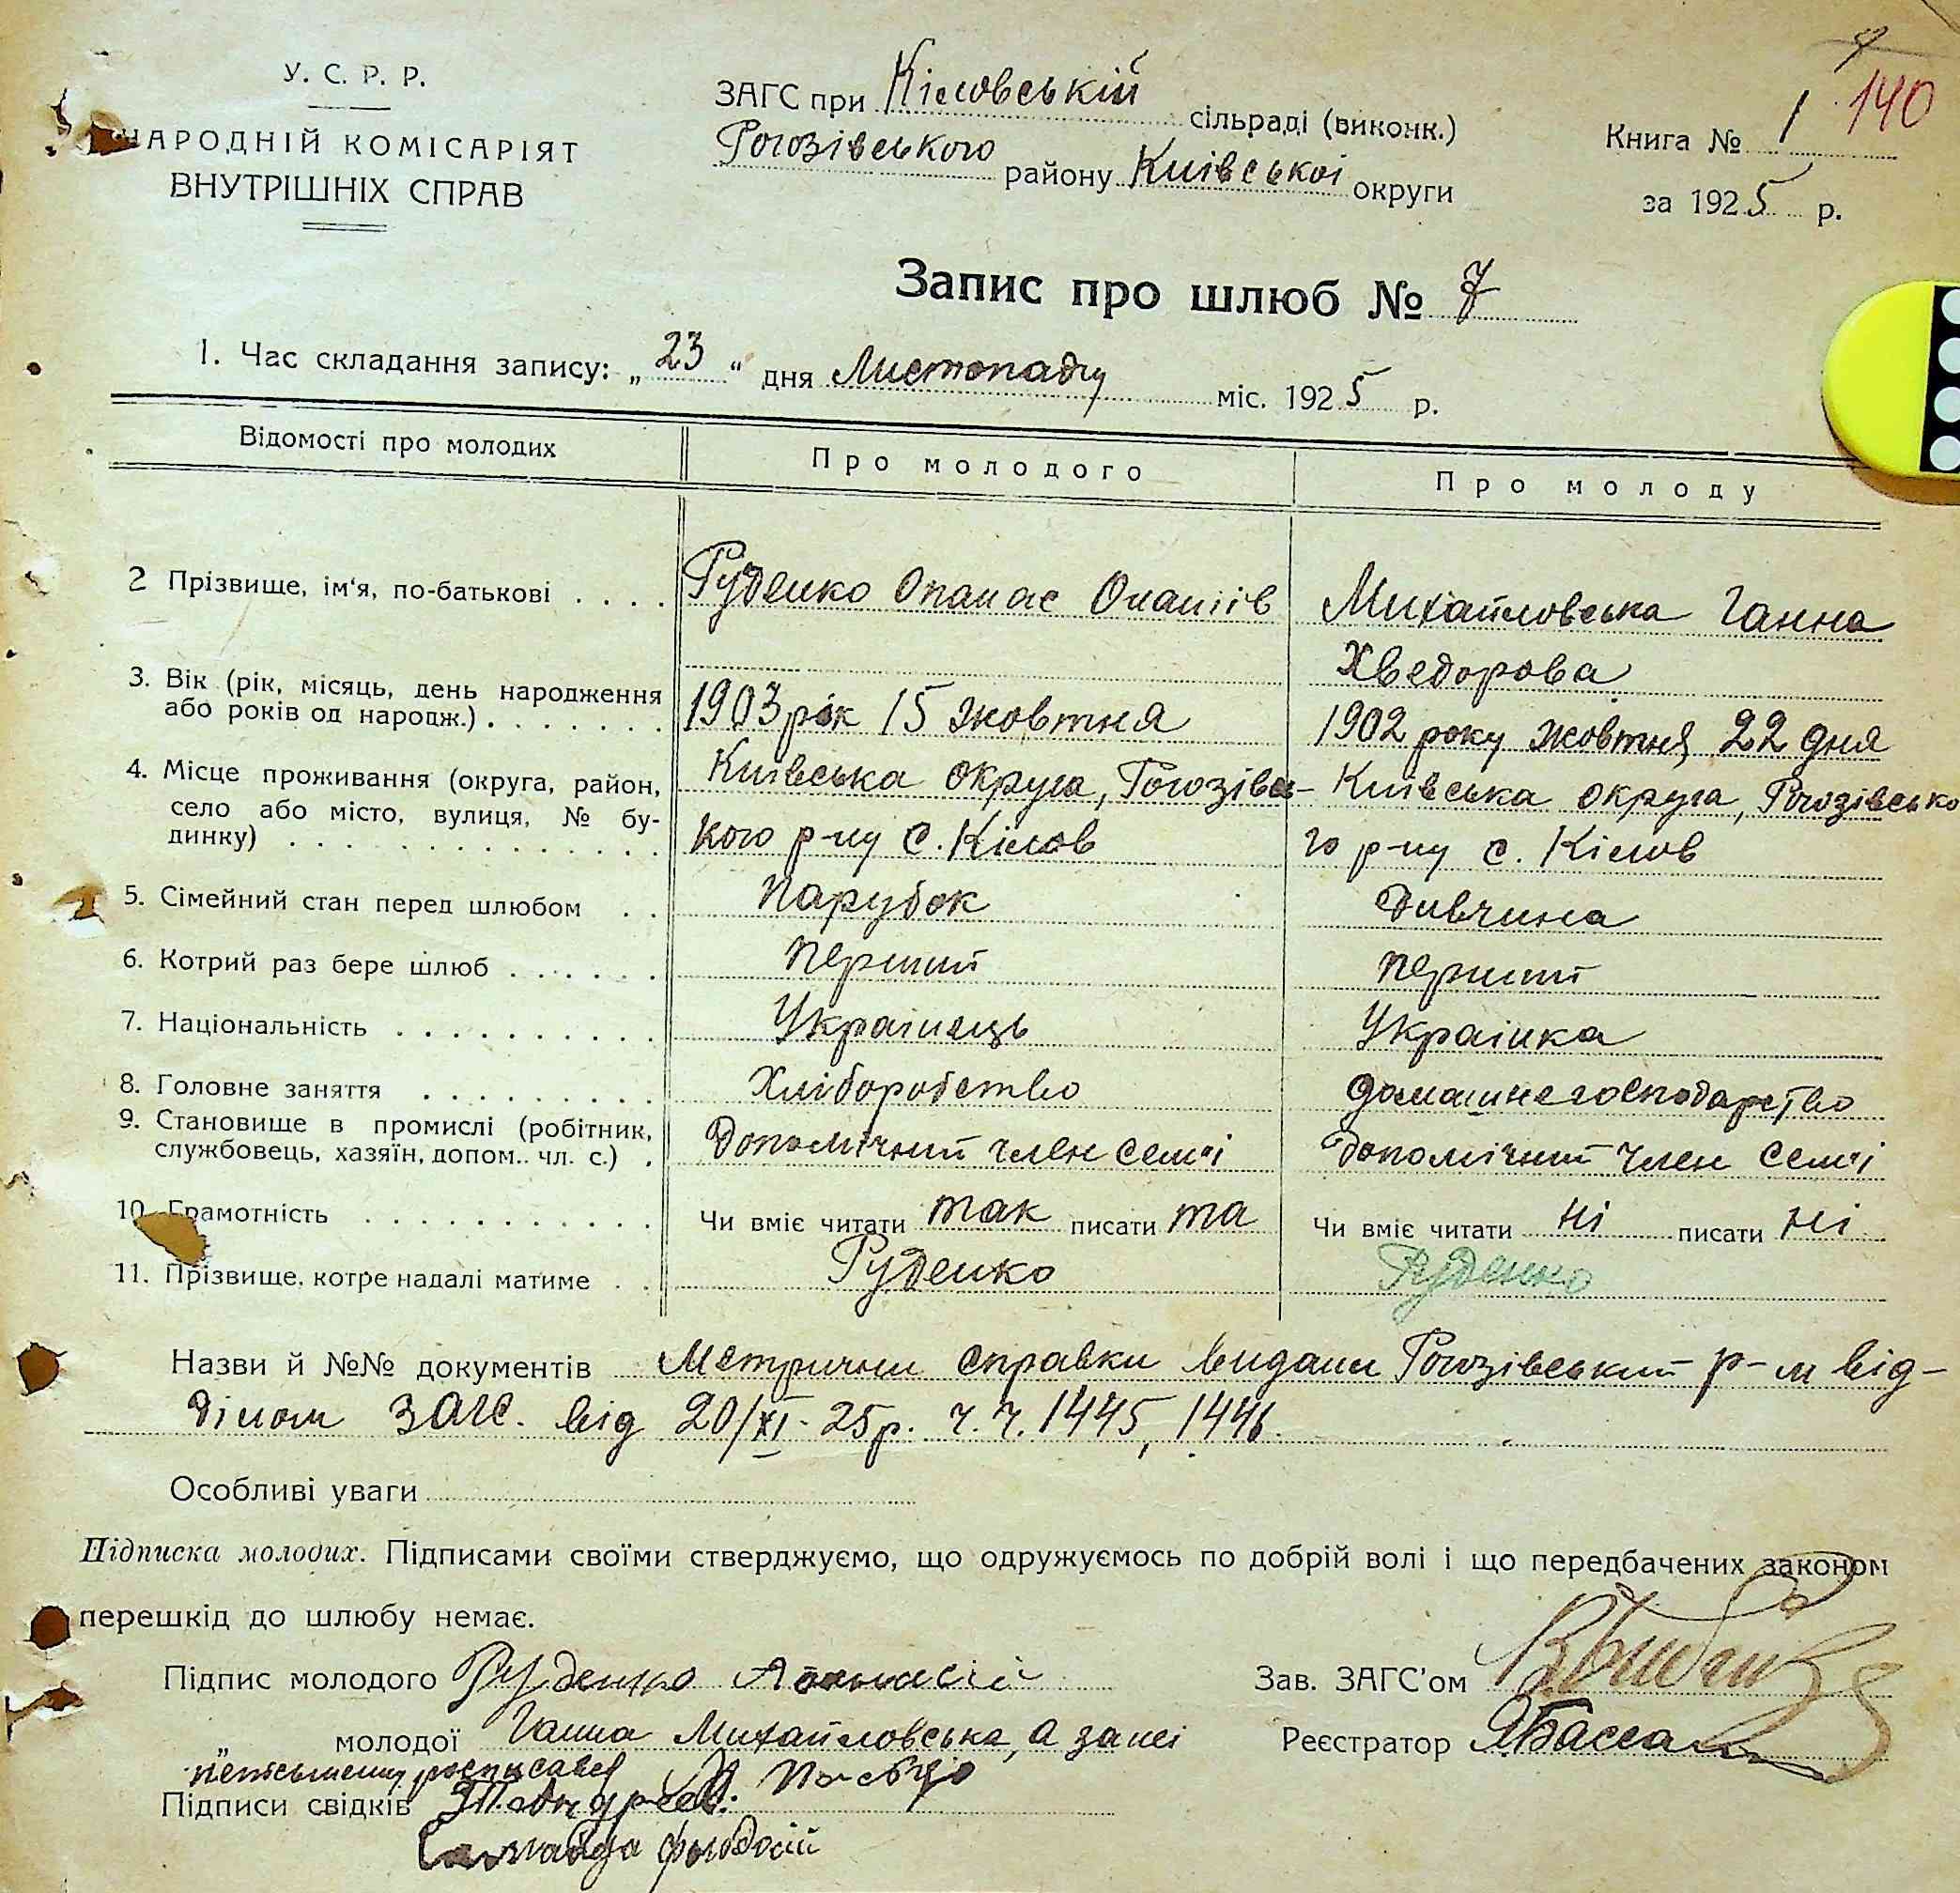 У. С. Р. Р.
НАРОДНІЙ КОМІСАРІЯТ
ВНУТРІШНІХ СПРАВ
ЗАГС при Кіловській сільраді (виконк.)
Рогозівського району Київської округи
Книга № 1 140
за 1925 р.
Запис про шлюб № 7
1. Час складання запису: „23“ дня Листопаду міс. 1925 р.
Відомості про молодих Про молодого Про молоду
2 Прізвище, ім'я, по-батькові . . . . Руденко Опанас Михайловська Ганна
Хведорова
3. Вік (рік, місяць, день народження
або років од народж.) . . . . . . . 1903 рік 15 жовтня 1902 року жовтня 22 дня
4. Місце проживання (округа, район,
село або місто, вулиця, № бу-
динку) . . . . . . . . . . . . . . .
Київська округа, Рогозівсь-
кого р-ну с. Кілов
Київська округа, Рогозівсько
го р-ну с. Кілов
5. Сімейний стан перед шлюбом . . Парубок Дивчина
6. Котрий раз бере шлюб . . . . . . Перший Перший
7. Національність . . . . . . . . . . Украінець Украінка
8. Головне заняття . . . . . . . . . Хліборобство домашнегосподарство
9. Становище в промислі (робітник,
службовець, хазяїн, допом.. чл. с.) . Допомічний член семʼі Допомічний член семʼі
10. Грамотність . . . . . . . . . . . Чи вміє читати так писати та Чи вміє читати ні писати ні
11. Прізвище, котре надалі матиме . . Руденко Руденко
Назви й №№ документів Метрични справки видани Рогозівський р-м від-
ділом ЗАГС. від 20/XI-25р. ч.ч. 1445, 1446.
Особливі уваги
Підписка молодих. Підписами своїми стверджуємо, що одружуємось по добрій волі і що передбачених законом
перешкід до шлюбу немає.
Підпис молодого Руденко Зав. ЗАГС'ом
„ молодої Ганна Михайловська, а за неі Реєстратор
росписався
Підписи свідків